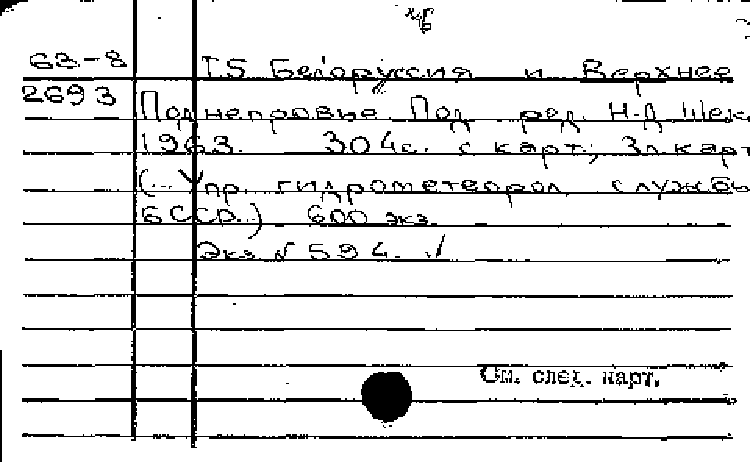 63-8
2693
Т.5 Белоруссия и Верхнее
Поднепровье. Под ред. Н.Д. Шек
1963. 304с. с карт.; 3л. карт
(... Упр. гидрометеорол. служб
БССР.) 600 экз.
Экз. № 594.
См. след. карт.